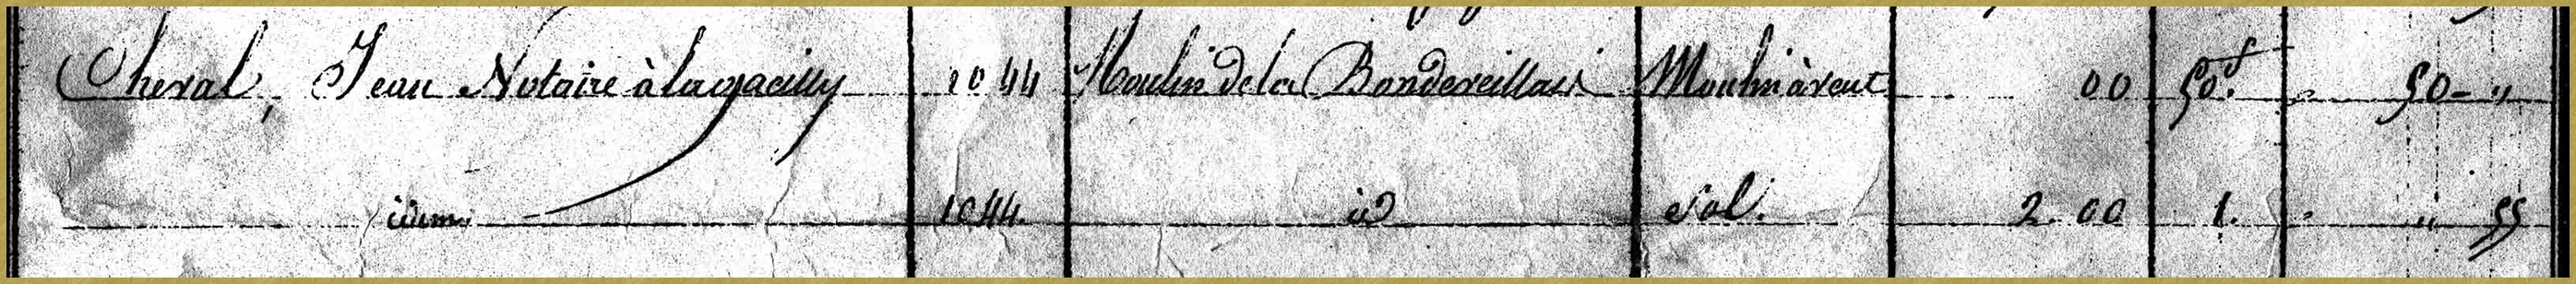 Cheval, Jean Notaire à lagacilly 1044 Moulin de la Bandereillais Moulin à vent 00 50.f 50 - "
idem 1044. id Sol. 2. 00 1. " 55